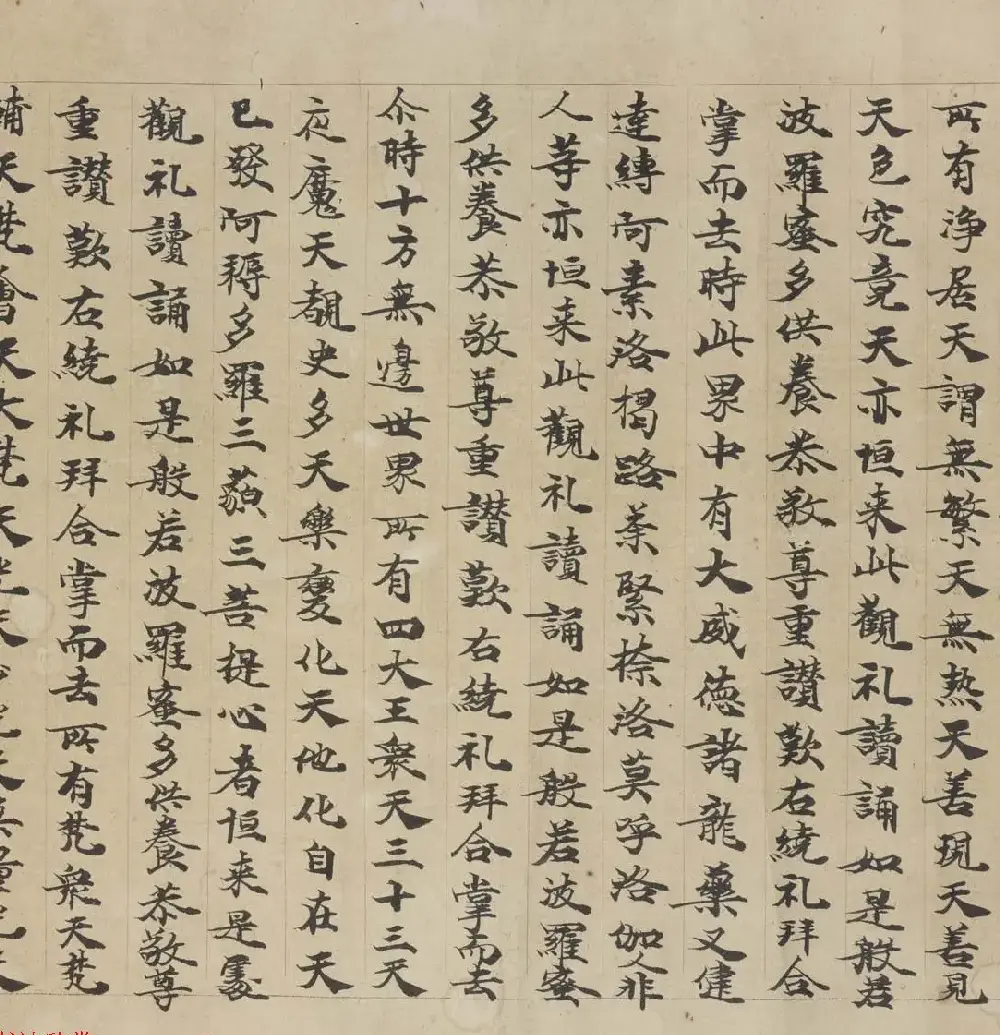 所有淨居天謂無繁天無熱天善現天善見
天色究竟天亦恒来此觀礼讀誦如是般若
波羅蜜多供養恭敬尊重讃歎右繞礼拜合
掌而去時此界中有大威德諸龍藥叉健
達縛阿素洛揭路荼緊捺洛莫呼洛伽人非
人等亦恒来此觀礼讀誦如是般若波羅蜜
多供養恭敬尊重讃歎右繞礼拜合掌而去
尒時十方無邊世界所有四大王衆天三十三天
夜魔天覩史多天樂變化天他化自在天
已發阿耨多羅三藐三菩提心者恒来是處
觀礼讀誦如是般若波羅蜜多供養恭敬尊
重讃歎右繞礼拜合掌而去所有梵衆天梵
輔天梵會天大梵天光天